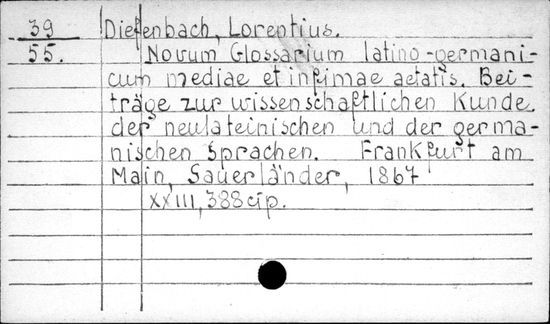 39 Diefenbach, Lorentius.
55. Novum Glossarium latino-germani-
cum mediae et infimae aetatis. Bei-
träge zur wissenschaftlichen Kunde
der neulateinischen und der germa-
nischen Sprachen. Frankfurt am
Main, Sauerländer, 1867
XXIII, 388 стр.